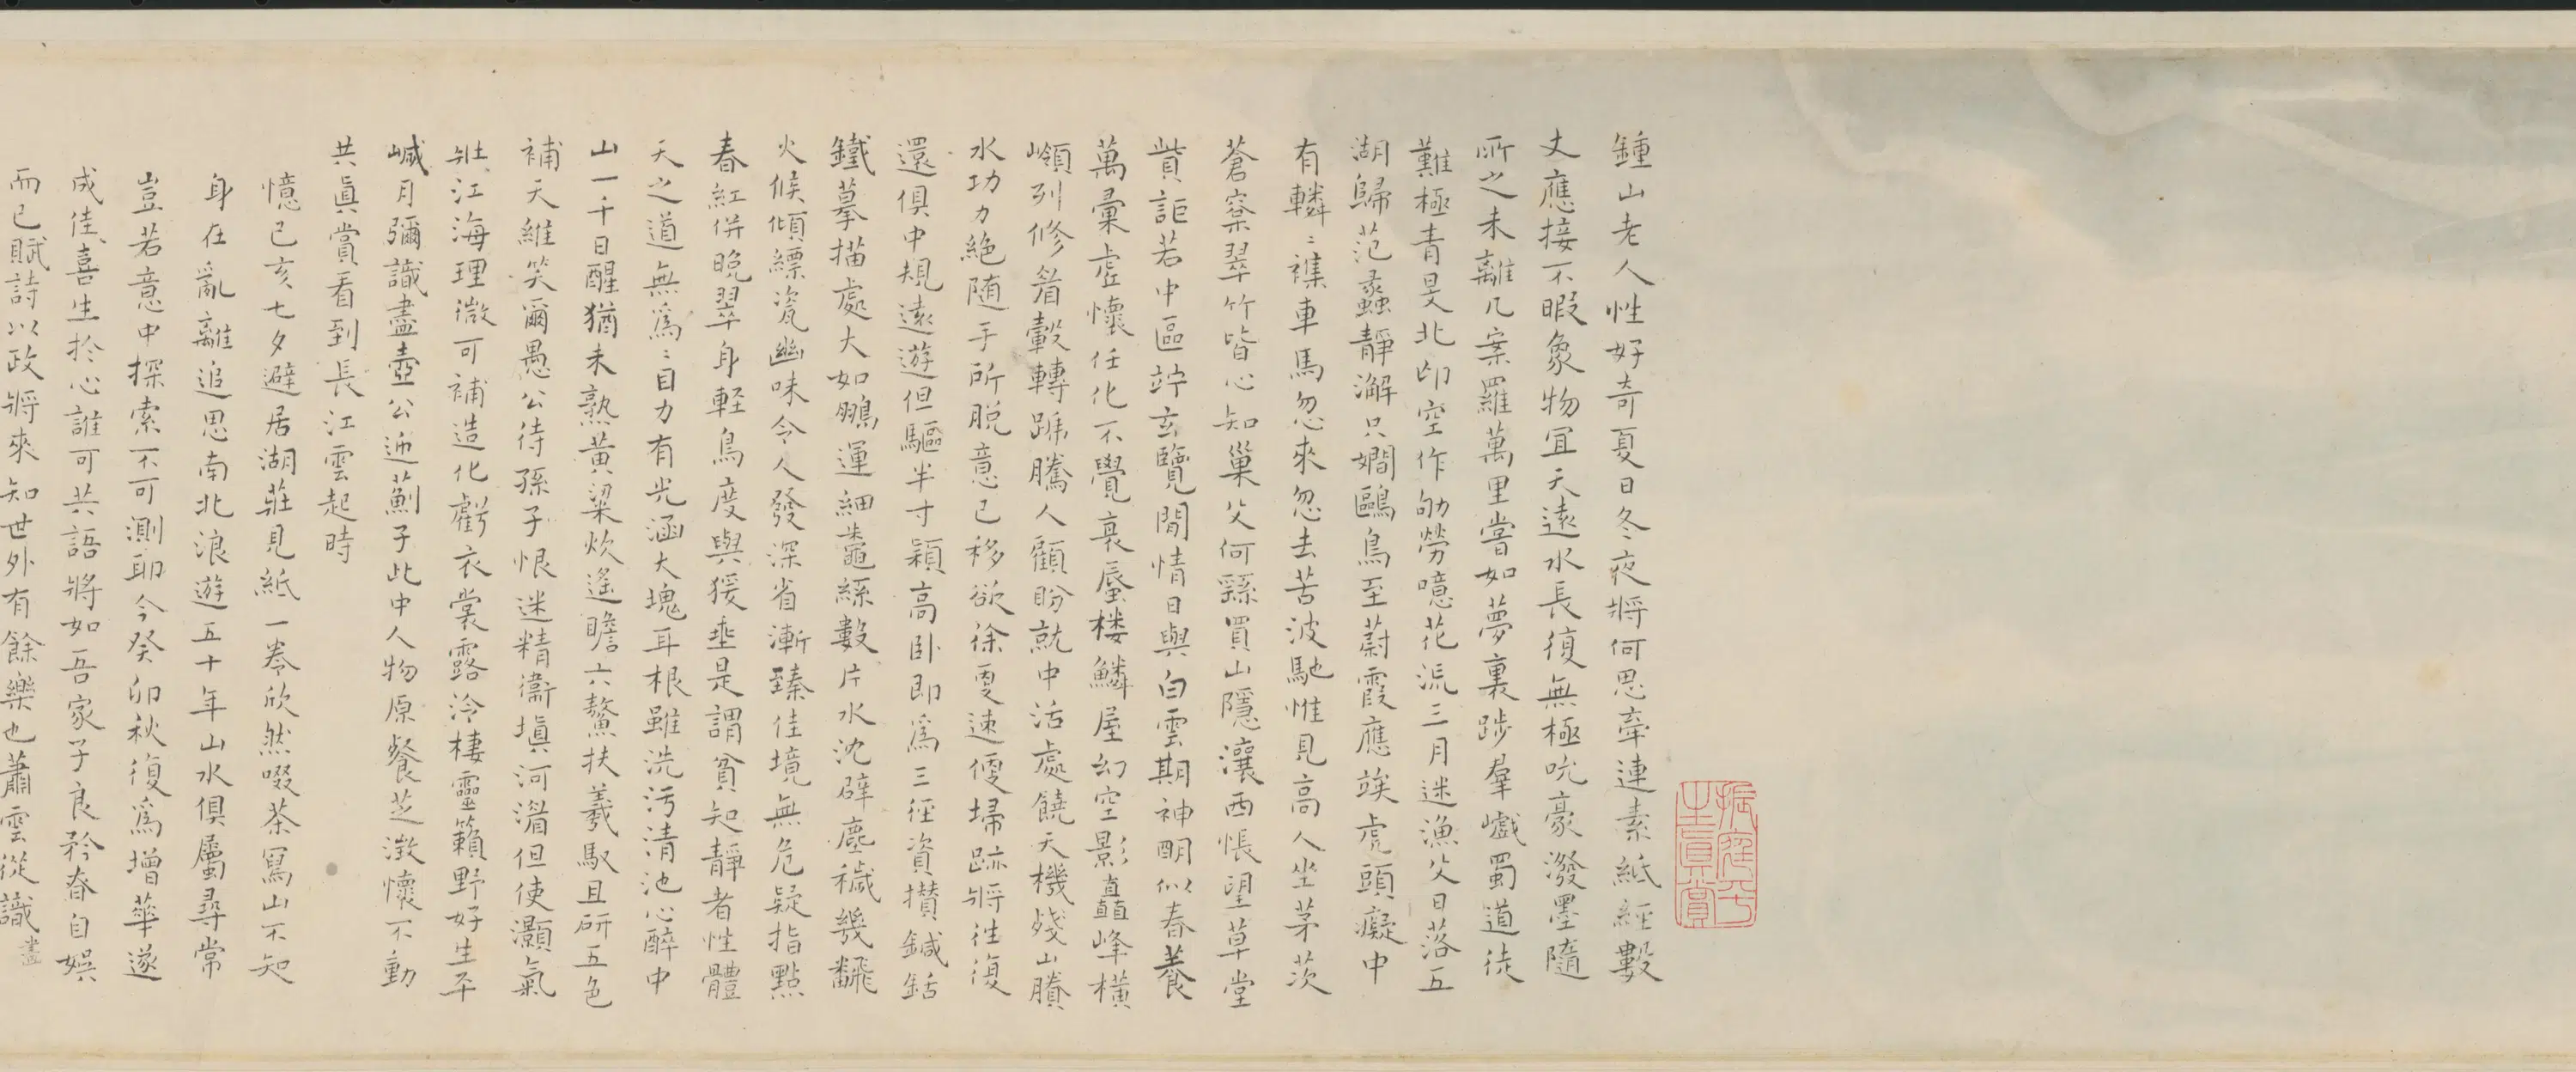 鍾山老人性好奇夏日冬夜將何思牽連素紙經數
丈應接不暇象物宜天遠水長復無極吮豪潑墨隨
所之未離几案羅萬里嘗如夢裏踄羣巇蜀道徒
難極青旻北邙空作劬勞噫花流三月迷漁父日落五
湖歸范蠡靜澥只嫺鷗鳥至蔚霞應竢虎頭癡中
有轔〻襍車馬忽來忽去苦波馳惟見高人坐茅茨
蒼寀翠竹皆心知巢父何繇買山隱瀼西悵望草堂
貲詎若中區竚玄覽閒情日與白雲期神明似春養
萬彙虛懷任化不覺衰蜃樓鱗屋幻空影矗峰橫
嶺列修眉轂轉蹏騰人顧盼就中活處饒天機殘山賸
水功力絕随手所脫意已移欲徐更速儍埽跡將徃復
還俱中規遠遊但驅半寸穎高卧即為三徑資攅鍼銛
鐵摹描處大如鵬運細鼃繇數片水沈辟塵穢幾飜
火候傾縹瓷幽味令人發深省漸臻佳境無危疑指點
春紅併晚翠身輕鳥度與猨垂是謂貧知靜者性體
天之道無為〻目力有光涵大塊耳根雖洗污清池心醉中
山一千日醒猶未熟黃粱炊遙瞻六鰲扶羲馭且研五色
補天維笑爾愚公待孫子恨迷精衞塡河湄但使灝氣
壯江海理微可補造化虧衣裳露泠棲靈籟野好生平
緘月彌識盡壺公迺薊子此中人物原餐芝澂懷不動
共眞賞看到長江雲起時
憶己亥七夕避居湖莊見紙一卷欣然啜茶寫山不知
身在亂離追思南北浪遊五十年山水俱屬尋常
豈若意中探索不可測耶今癸卯秋復為增華遂
成佳喜生於心誰可共語將如吾家子良矜眘自娛
而已賦詩以政將來知世外有餘樂也蕭雲從識
振庭平
生眞賞